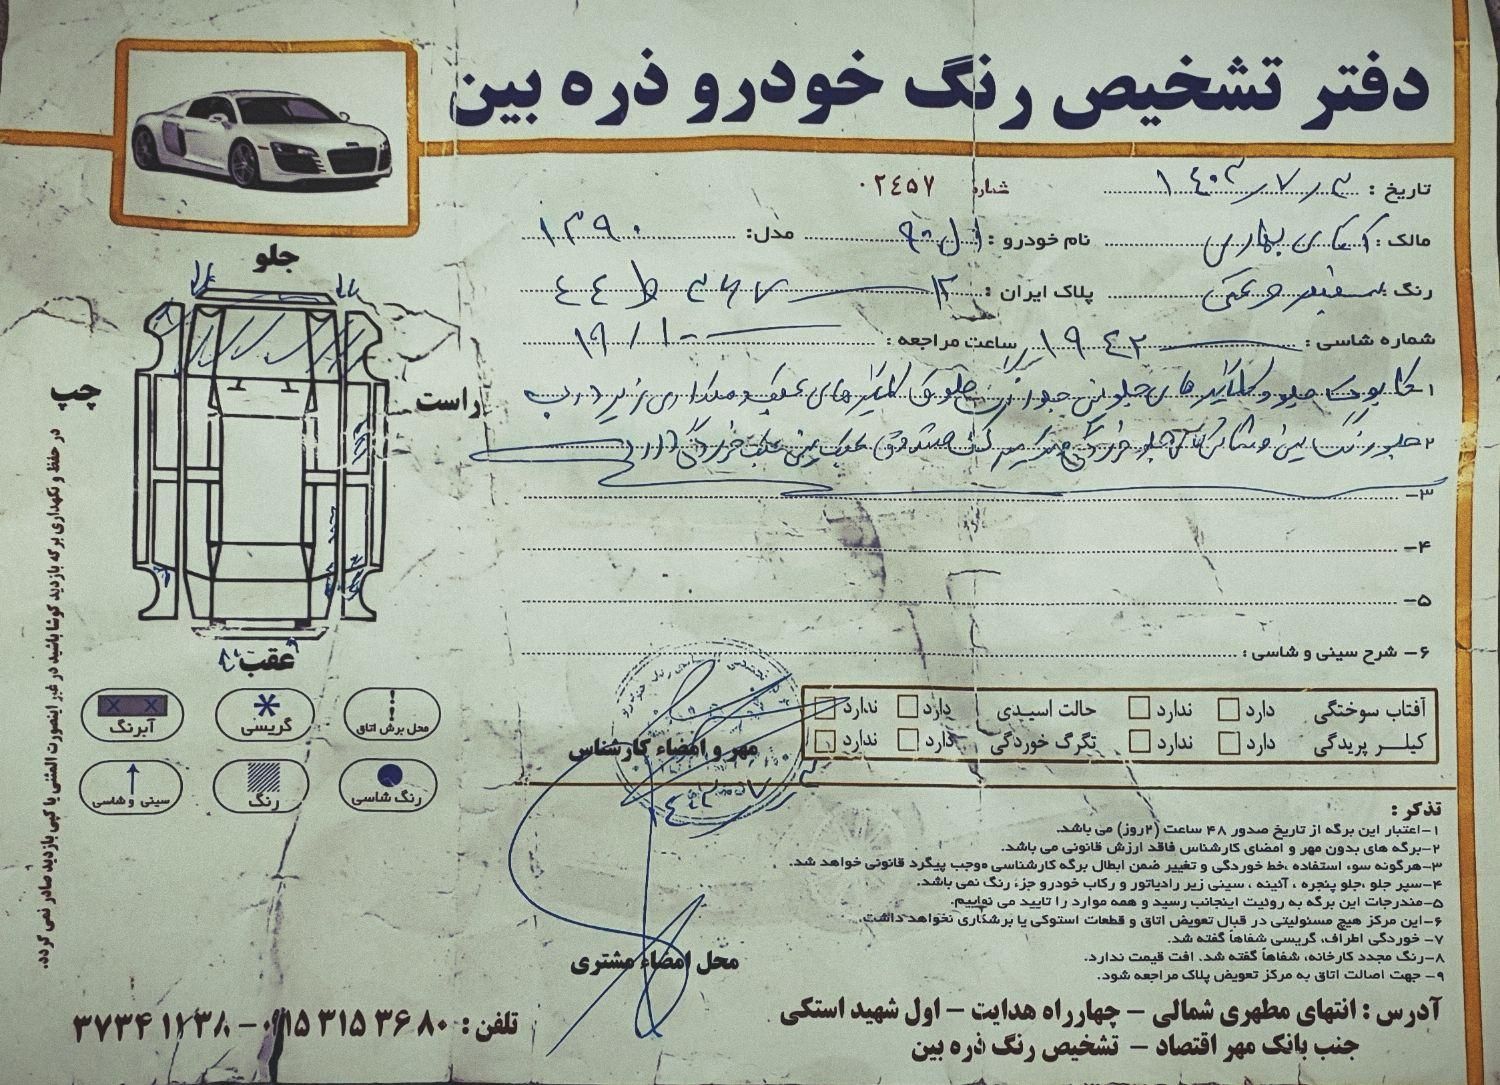 دفتر تشخیص رنگ خودرو ذره بین
تاریخ : ۱۴۰۳/۷/۳ شماره ۰۲۴۵۷
مالک : آقای بهاری نام خودرو : ال ۹۰ مدل: ۱۳۹۰
رنگ : سفید روغنی پلاک ایران : ۱۲ ۳۶۷ ط ۴۴
شماره شاسی : ۱۹۴۲ ساعت مراجعه : ۱۹/۱۰
۱- کاپوت جلو و گلگیرهای جلو رنگ گلگیرهای عقب و زیر درب
۲- جلو رنگ سینی و شاسی جلو خوردگی صندوق عقب سینی عقب خوردگی دارد
۳-
۴-
۵-
۶- شرح سینی و شاسی :
جلو
چپ
راست
عقب
در حفظ و نگهداری برگه بازدید کوشا باشید در غیر اینصورت المثنی یا کپی بازدید صادر نمی گردد.
محل برش اتاق گریسی آبرنگ
رنگ شاسی رنگ سینی و شاسی
آفتاب سوختگی دارد ندارد حالت اسیدی دارد ندارد
کیلـر پریدگی دارد ندارد تگرگ خوردگی دارد ندارد
مهر و امضاء کارشناس
تذکر :
۱-اعتبار این برگه از تاریخ صدور ۴۸ ساعت (۲روز) می باشد.
۲-برگه های بدون مهر و امضای کارشناس فاقد ارزش قانونی می باشد.
۳-هرگونه سوء استفاده ،خط خوردگی و تغییر ضمن ابطال برگه کارشناسی موجب پیگرد قانونی خواهد شد.
۴-سپر جلو ،جلو پنجره ، آئینه ، سینی زیر رادیاتور و رکاب خودرو جزء رنگ نمی باشد.
۵-مندرجات این برگه به روئیت اینجانب رسید و همه موارد را تایید می نماییم.
۶-این مرکز هیچ مسئولیتی در قبال تعویض اتاق و قطعات استوکی یا برشکاری نخواهد داشت.
۷- خوردگی اطراف، گریسی شفاهاً گفته شد.
۸-رنگ مجدد کارخانه، شفاهاً گفته شد. افت قیمت ندارد.
۹- جهت اصالت اتاق به مرکز تعویض پلاک مراجعه شود.
محل امضاء مشتری
آدرس : انتهای مطهری شمالی – چهارراه هدایت – اول شهید استکی
جنب بانک مهر اقتصاد – تشخیص رنگ ذره بین
تلفن : ۰۹۱۵ ۳۱۵ ۳۶ ۸۰ – ۳۷۳۴ ۱۷۳۸